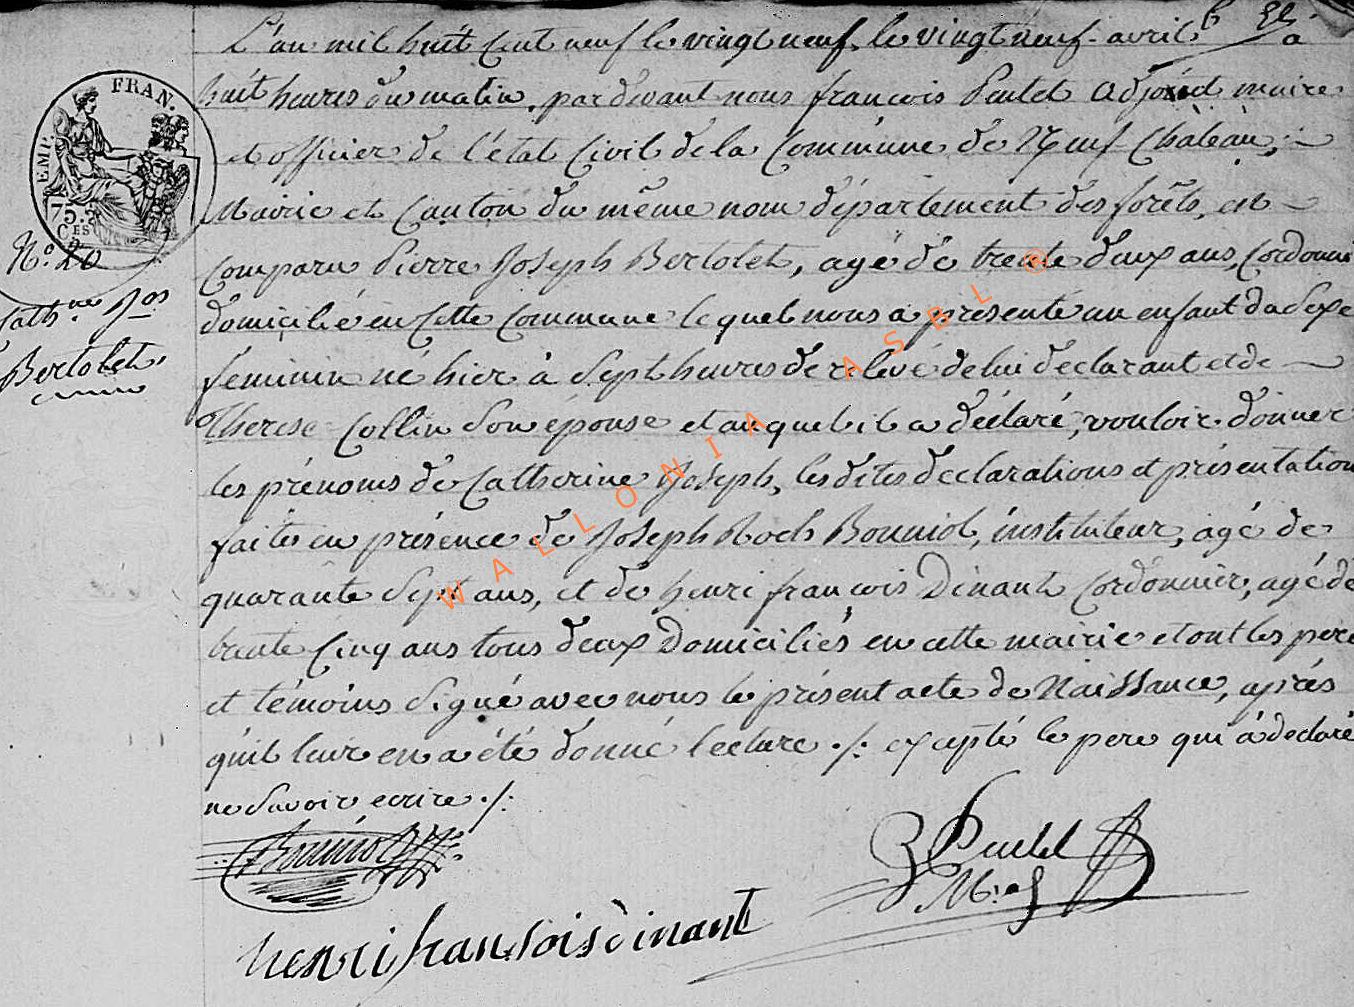 L'an mil huit cent neuf le vingt neuf, le vingt neuf avril à
huit heures du matin, pardevant nous françois Poulet adjoint maire
et officier de l'état Civil de la Commune de Neuf Château,
Mairie et Canton du même nom département des forêts, est
Comparu Pierre Joseph Bertolet, agé de trente deux ans, Cordonni
domicilié en Cette Commune lequel nous a présenté un enfant du Sexe
féminin né hier à Sept heures de relevé de lui declarant et de
Therese Collin Son épouse et auquel il a déclaré, vouloir donner
les prénoms de Catherine Joseph, les dites declarations et présentation
faites en présence de Joseph Roch Bouniol, instituteur, agé de
quarante Sept ans, et de henri françois Dinant Cordonnier, agé de
trente Cinq ans tous deux Domiciliés en cette mairie et ont les pere
et témoins Signé avec nous le présent acte de Naissance, après
qu'il leur en a été donné lecture ./. excepté le pere qui a declaré
ne Savoir ecrire ./.
EMP. FRAN.
75.
CES
N.° 20
Cath.ne Jos
Bertolet
Bouniol
henri fransois dinant